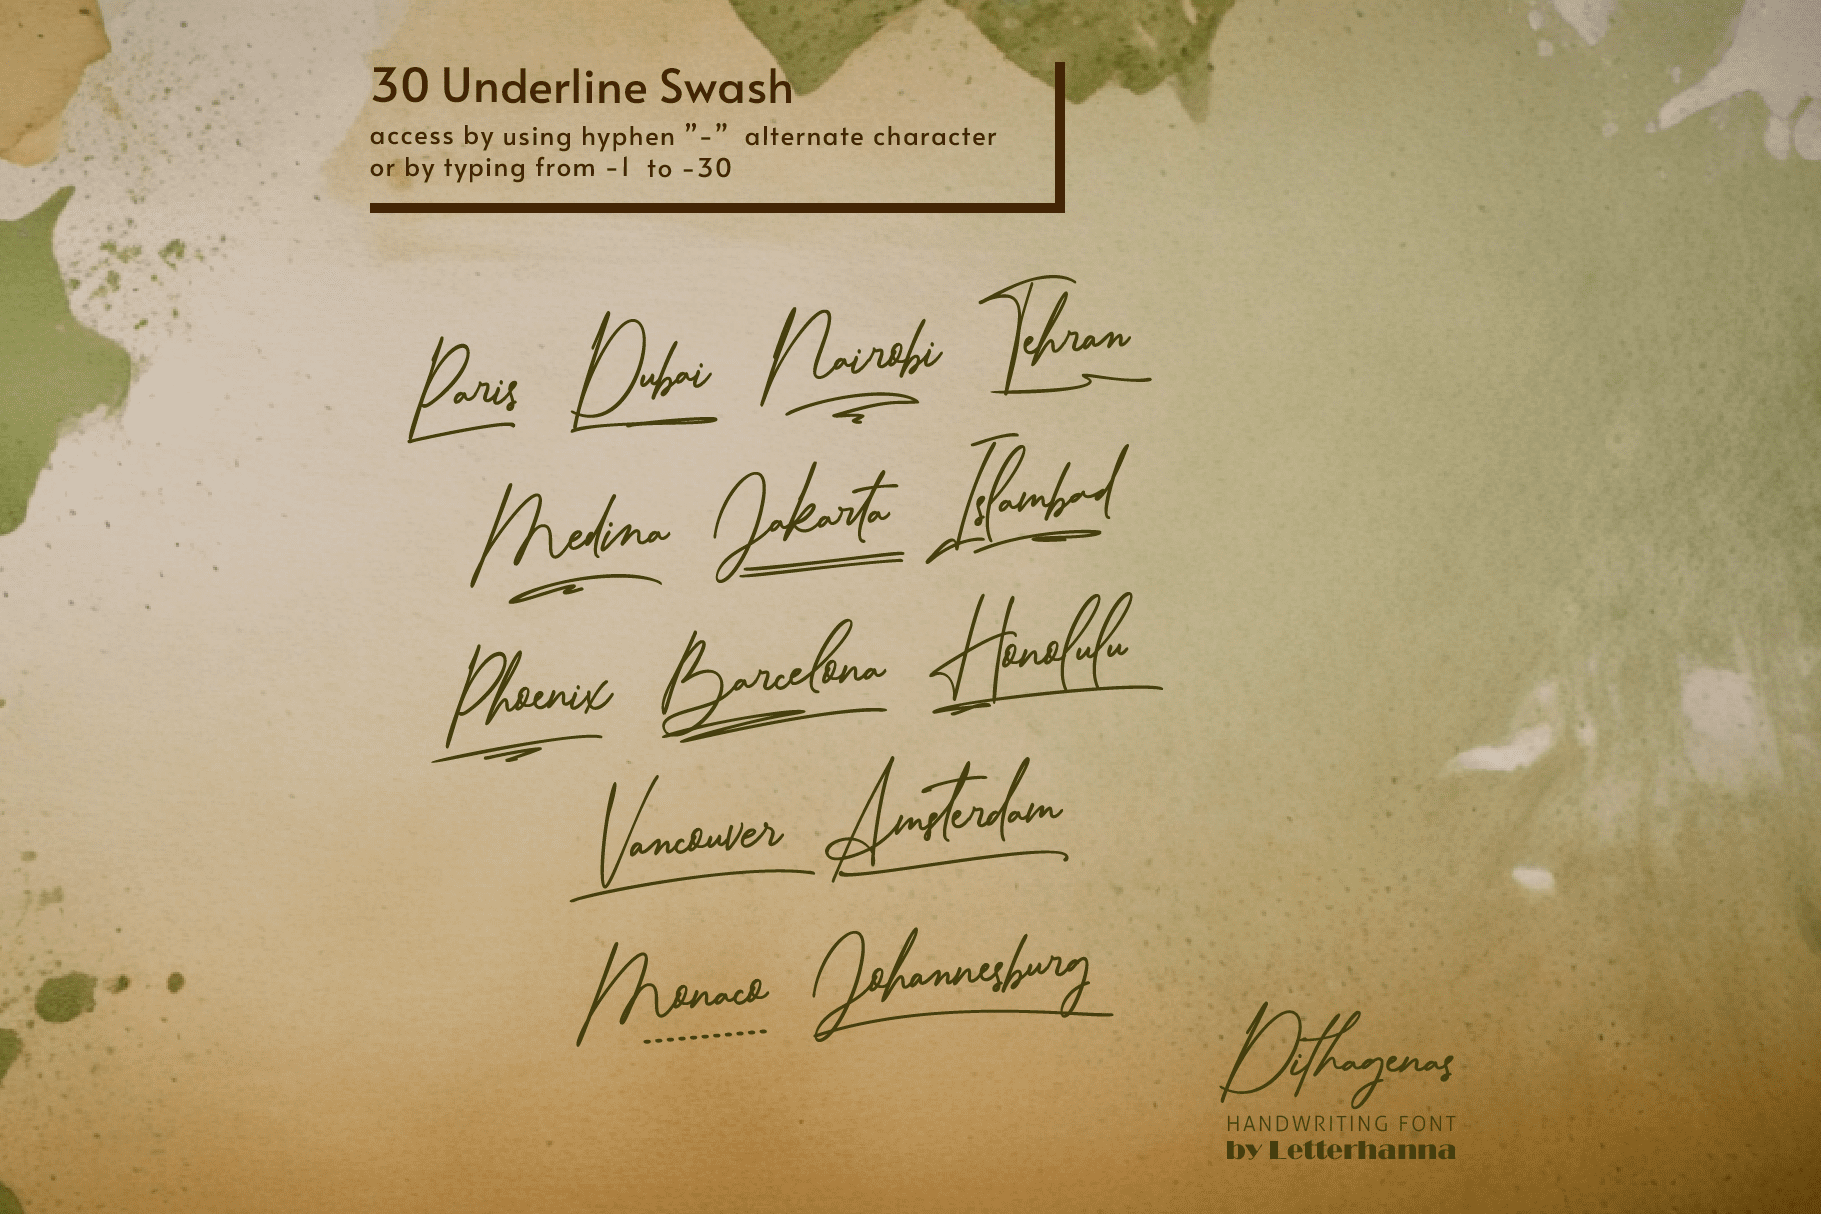 30 Underline Swash
access by using hyphen ”-” alternate character
or by typing from -1 to -30
Paris Dubai Nairobi Tehran
Medina Jakarta Islambad
Phoenix Barcelona Honolulu
Vancouver Amsterdam
Monaco Johannesburg
Dithagenas
HANDWRITING FONT
by Letterhanna